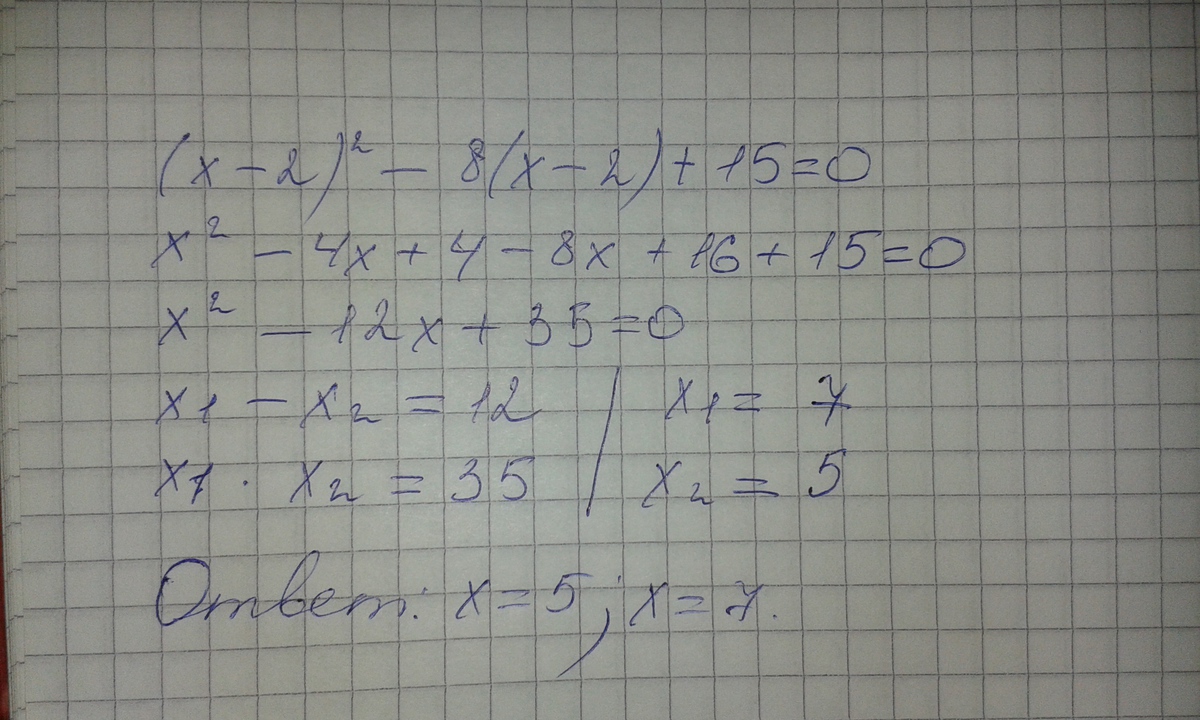 (x-2)² - 8(x-2) + 15 = 0
x² - 4x + 4 - 8x + 16 + 15 = 0
x² - 12x + 35 = 0
x1 - x2 = 12 / x1 = 7
x1 · x2 = 35 / x2 = 5
Ответ: x = 5; x = 7.